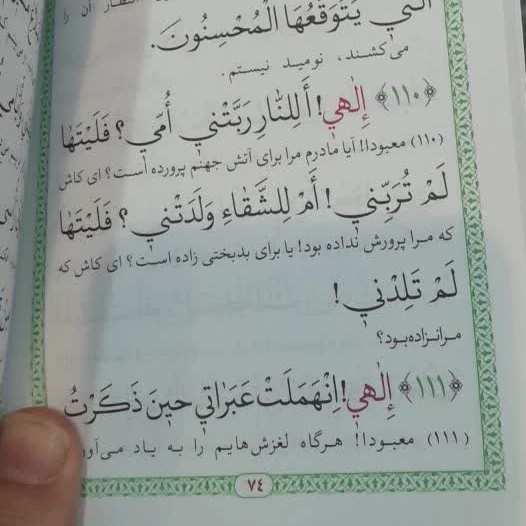 يَتَوَقَّعُهَا الْمُحْسِنُونَ.
می‌کشند، نومید نیستم.
﴿١١٠﴾ إِلٰهِي! أَلِلنَّارِ رَبَّتْنِي أُمِّي؟ فَلَيْتَهَا
(۱۱۰) معبودا! آیا مادرم مرا برای آتش جهنم پرورده است؟ ای کاش
لَمْ تُرَبِّنِي! أَمْ لِلشَّقَاءِ وَلَدَتْنِي؟ فَلَيْتَهَا
که مرا پرورش نداده بود! یا برای بدبختی زاده است؟ ای کاش که
لَمْ تَلِدْنِي!
مرا نزاده بود؟
﴿١١١﴾ إِلٰهِي! اِنْهَمَلَتْ عَبَرَاتِي حِينَ ذَكَرْتُ
(۱۱۱) معبودا! هرگاه لغزش‌هایم را به یاد
٧٤